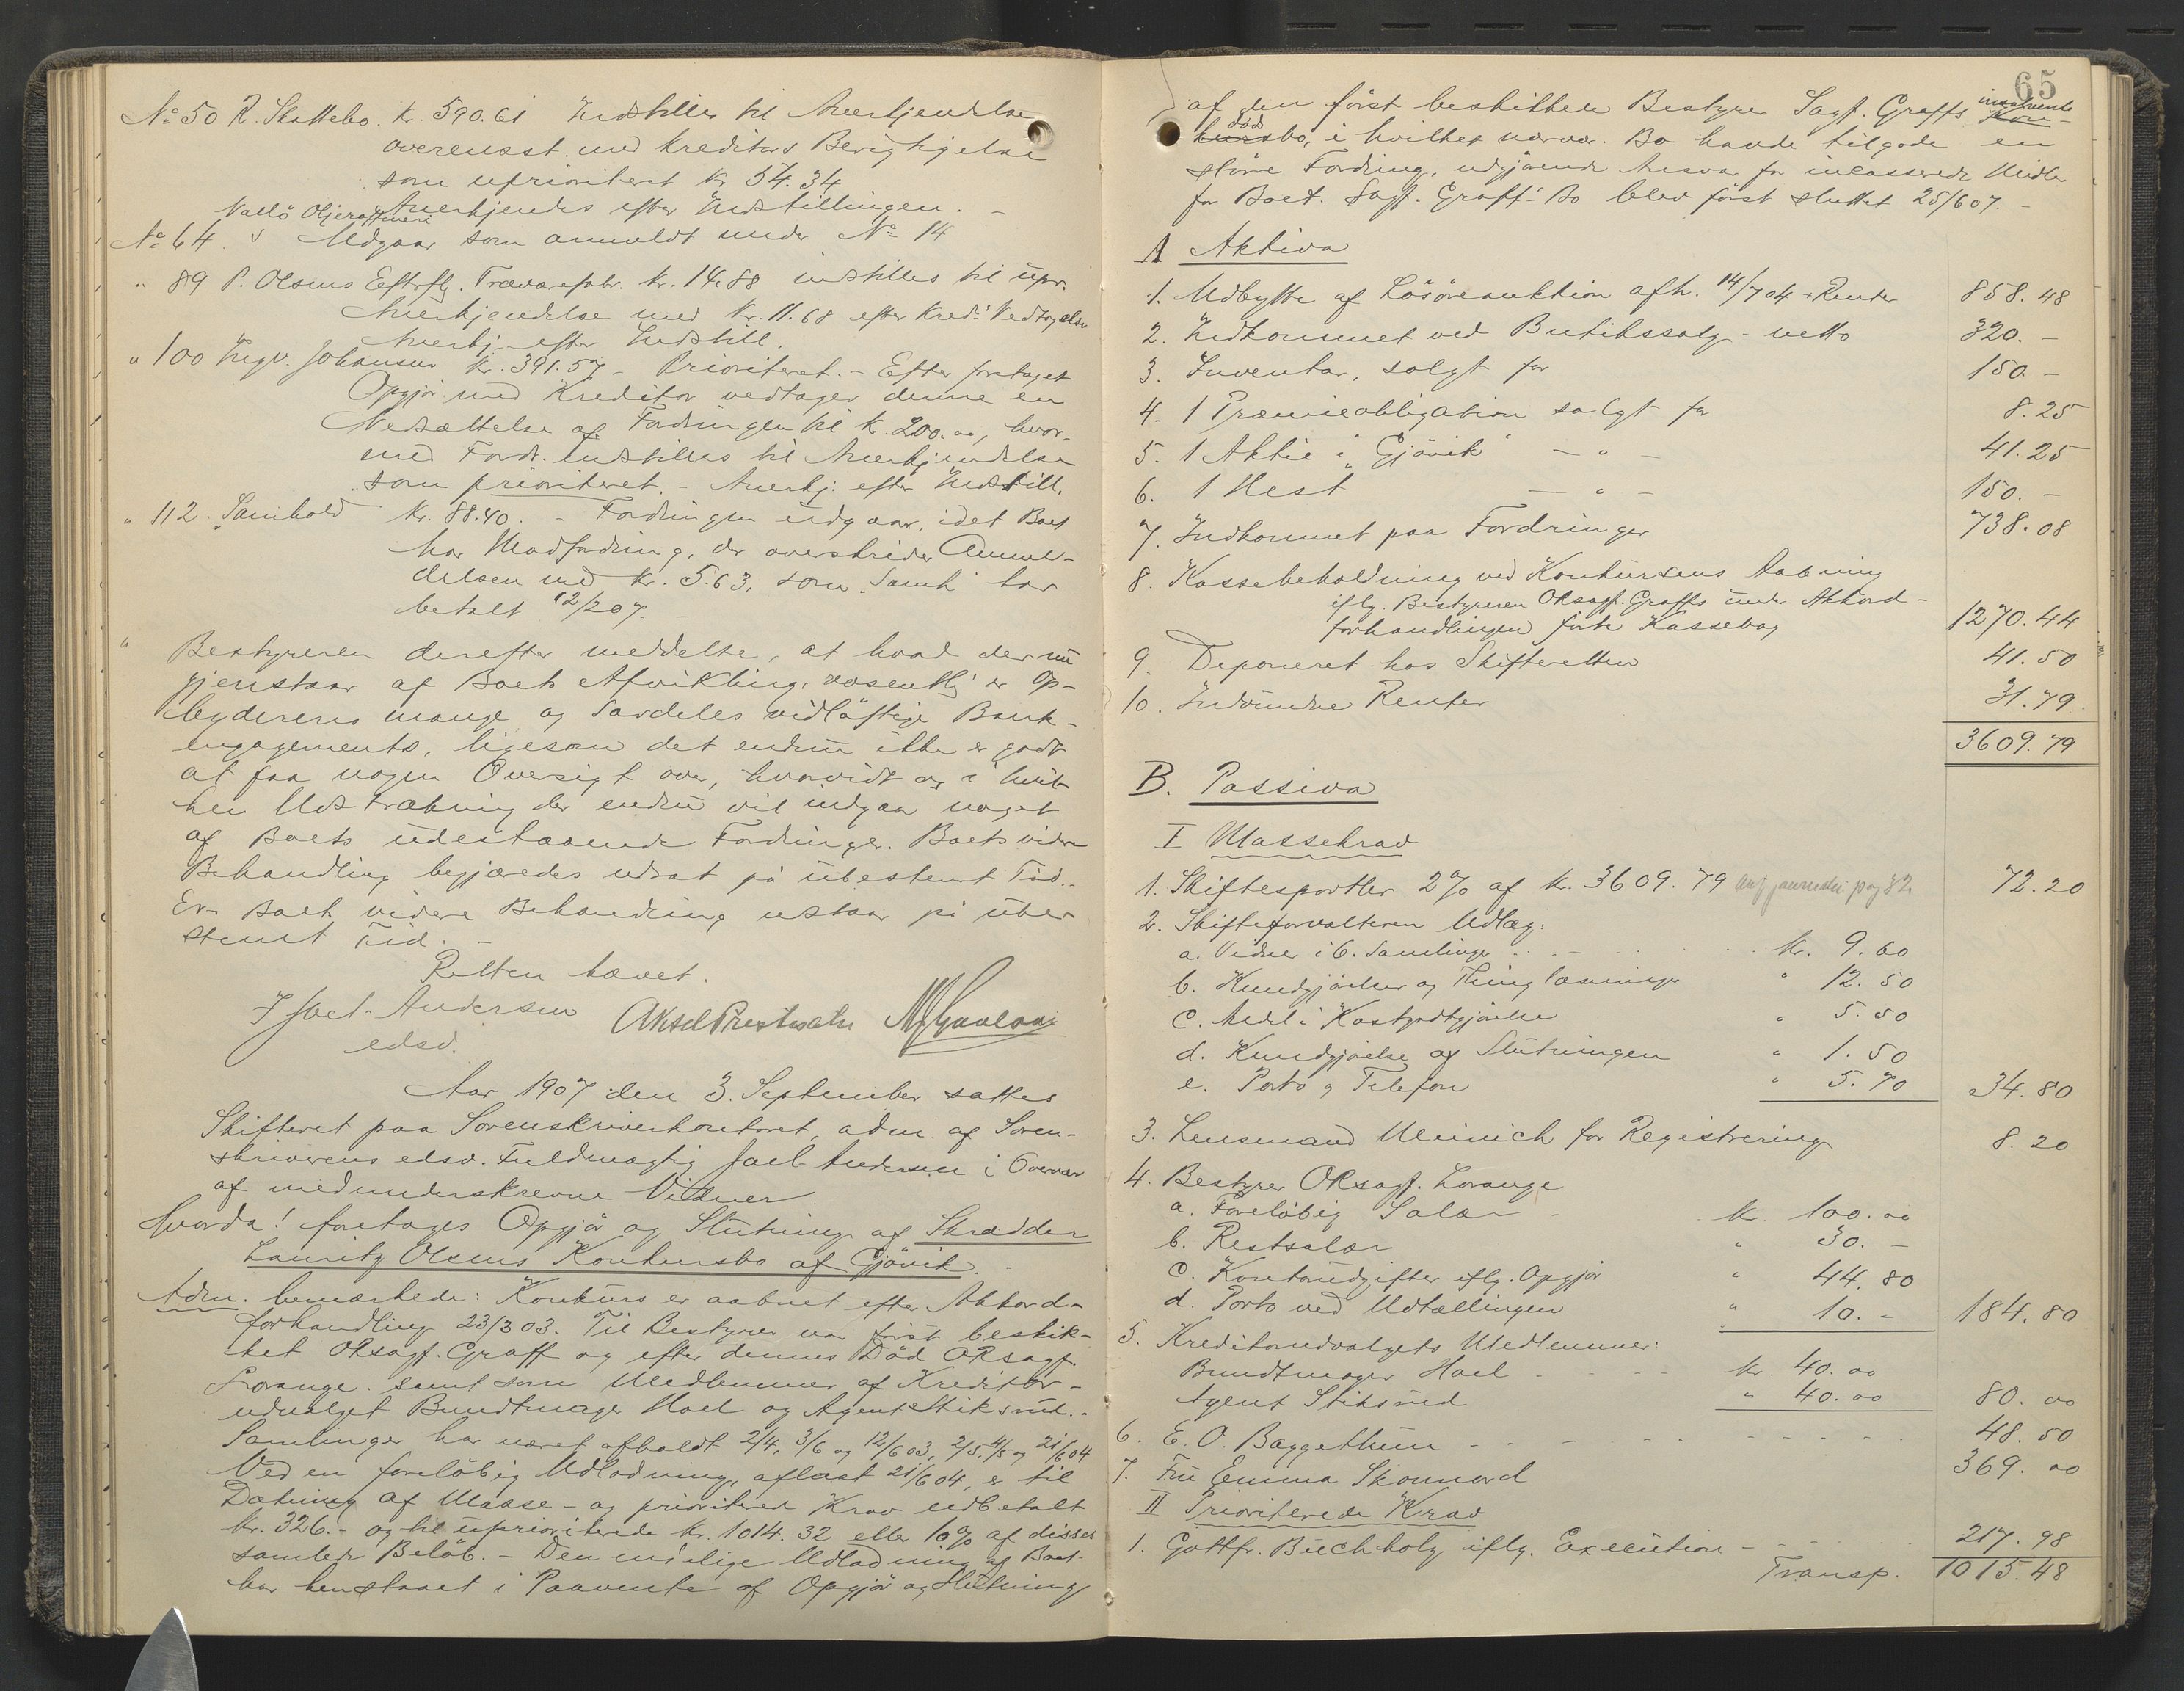 No 50 R. Skattebo. Kr. 590.61 Indstilles til Anerkjendelse
overensst. med Kreditors Berigtigelse
som uprioriteret kr 54.34
Anerkjendes efter Indstillingen. –
Vallö Oljeraffineri
No 64 Udgaar som anmeldt under No 14
" 89 P. Olsens Eftrflg. Trævarefabr. kr. 14.88 indstilles til upr.
Anerkjendelse med kr. 11.68 efter Kred.s Vedtagelse
Anerkj. efter Indstill.
" 100 Ingv. Johansen kr. 391.57 – Prioriteret. – Efter foretaget
Opgjör med Kreditor vedtager denne en
Nedsættelse af Fordringen til kr. 200.00, hvor-
med Fordr. indstilles til Anerkjendelse
som prioriteret. – Anerkj. efter Indstill.
" 112 "Samhold" kr. 88.40. – Fordringen udgaar, idet Boet
har Modfordring, der overskrider Anmel-
delsen med kr. 5.63, som "Samh" har
betalt 12/2 07. –
" Bestyreren derefter meddelte, at hvad der nu
gjenstaar af Boets Afvikling, væsentlig er Op-
byderens mange og særdeles vidløftige Bank-
engagements, ligesom det endnu ikke er godt
at faa nogen Oversigt over, hvorvidt og i hvil-
ken Udstrækning der endnu vil indgaa noget
af Boets udestaaende Fordringer. Boets videre
Behandling begjæredes udsat på ubestemt Tid.
Boets videre Behandling udstaar på ube-
stemt Tid. –
Retten hævet.
Joel Andersen Aksel Prestsæter
edsv.
Aar 1907 den 3. September sattes
Skifteret paa Sorenskriverkontoret, adm. af Soren-
skriverens edsv. Fuldmægtig Joel Andersen i Overvær
af medunderskrevne Vidner
Hvorda! foretages Opgjör og Slutning af Skrædder
Lauritz Olsens Konkursbo af Gjövik. –
Adm. bemærkede: Konkurs er aabnet efter Akkord-
forhandling 23/3 03. Til Bestyrer var först beskik-
ket ORsagf. Graff og efter dennes Död ORsagf.
Lorange. samt som Medlemmer af Kreditor-
udvalget Bundtmager Hoel og Agent Stiksrud. –
Samlinger har været afholdt 2/4, 3/6 og 12/6 03, 2/5, 11/5 og 21/6 04
Ved en foreløbig Udlodning, aflæst 21/6 04, er til
Dækning af Masse- og prioriterede Krav udbetalt
kr. 326.– og til uprioriterede kr. 1014.32 eller 10% af disses
samlede Belöb. – Den endelige Udlodning af Boet
har henstaaet i Paavente af Opgjör og Slutning
65
af den först beskikkede Bestyrer Sagf. Graffs insolvente Kon-
död
kursbo, i hvilket nærvær. Bo havde tilgode en
större Fordring, udgjörende Ansvar for incasserede Midler
for Boet. Sagf. Graff's Bo blev först sluttet 25/6 07. –
A Aktiva
1. Udbytte af Lösöreauktion afh. 14/7 04 + Renter 858.48
2. Indkommet ved Butikssalg – netto 320.–
3. Inventar, solgt for 150.–
4. 1 Præmieobligation solgt for 8.25
5. 1 Aktie i "Gjövik" – " – 41.25
6. 1 Hest – " – 150.–
7. Indkommet paa Fordringer 738.08
8. Kassebeholdning ved Konkursens Aabning
iflg. Bestyreren ORsagf. Graffs under Akkord-
forhandlingen förte Kassebog 1270.44
9. Deponeret hos Skifteretten 41.50
10. Indvundne Renter 31.79
3609.79
B. Passiva
I Massekrav
1. Skiftesportler 2% af kr. 3609.79 72.20
2. Skifteforvalteren Udlæg:
a. Vidner i 6. Samlinger kr. 9.60
b. Kundgjörelser og Thinglæsninger " 12.50
c. Andel i Kostgodtgjörelse " 5.50
d. Kundgjörelse af Slutningen " 1.50
e. Porto og Telefon " 5.70 34.80
3. Lensmand Meinich for Registrering 8.20
4. Bestyrer ORsagf. Lorange
a. Foreløbig Salær – kr. 100.00
b. Restsalær " 30.–
c. Kontorudgifter iflg. Opgjör " 44.80
d. Porto ved Udtællingen " 10.– 184.80
5. Kreditorudvalgets Medlemmer:
Bundtmager Hoel kr. 40.00
Agent Stiksrud " 40.00 80.00
6. E. O. Baggethun 48.50
7. Fru Emma Skonnord 369.00
II Prioriterede Krav
1. Gottfr. Buchholz iflg. Execution – 217.98
Transp. 1015.48